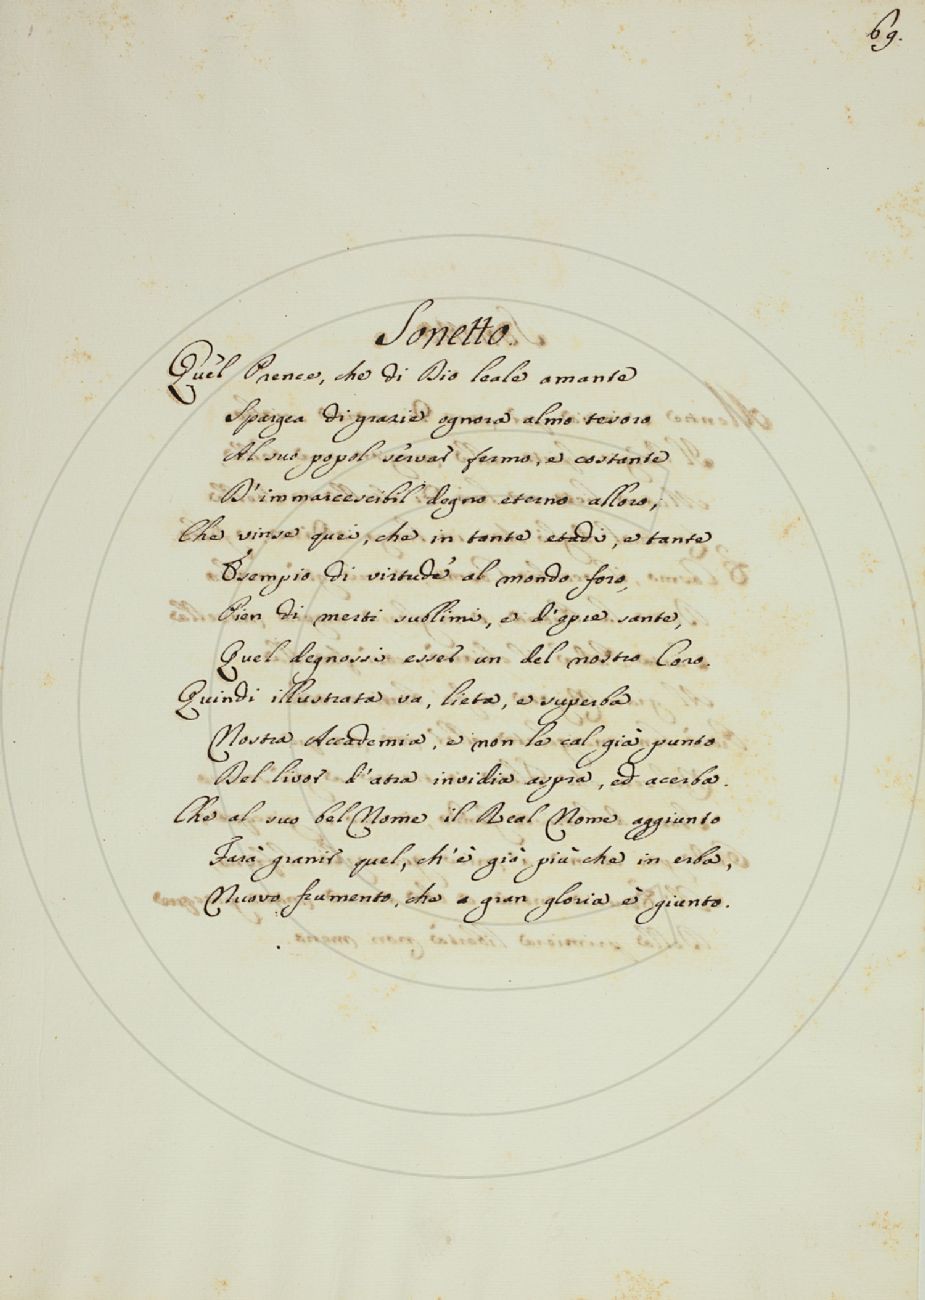 69.
Sonetto.
Quel Prence, che di Dio leale amante
Spargea di grazie ognora almo tesoro
Al suo popol servar fermo, e costante
D'immarcescibil degno eterno alloro;
Che vinse quei, che in tante etadi, e tante
Esempio di virtude al mondo foro,
Pien di merti sublimi, e d'opre sante,
Quel degnossi esser un del nostro Coro.
Quindi illustrata va, lieta, e superba
Nostra Accademia, e non le cal già punto
Del livor d'atra invidia aspra, ed acerba.
Che al suo bel Nome il Real Nome aggiunto
Farà granir quel, ch'è già più che in erba,
Nuovo frumento, che a gran gloria è giunto.